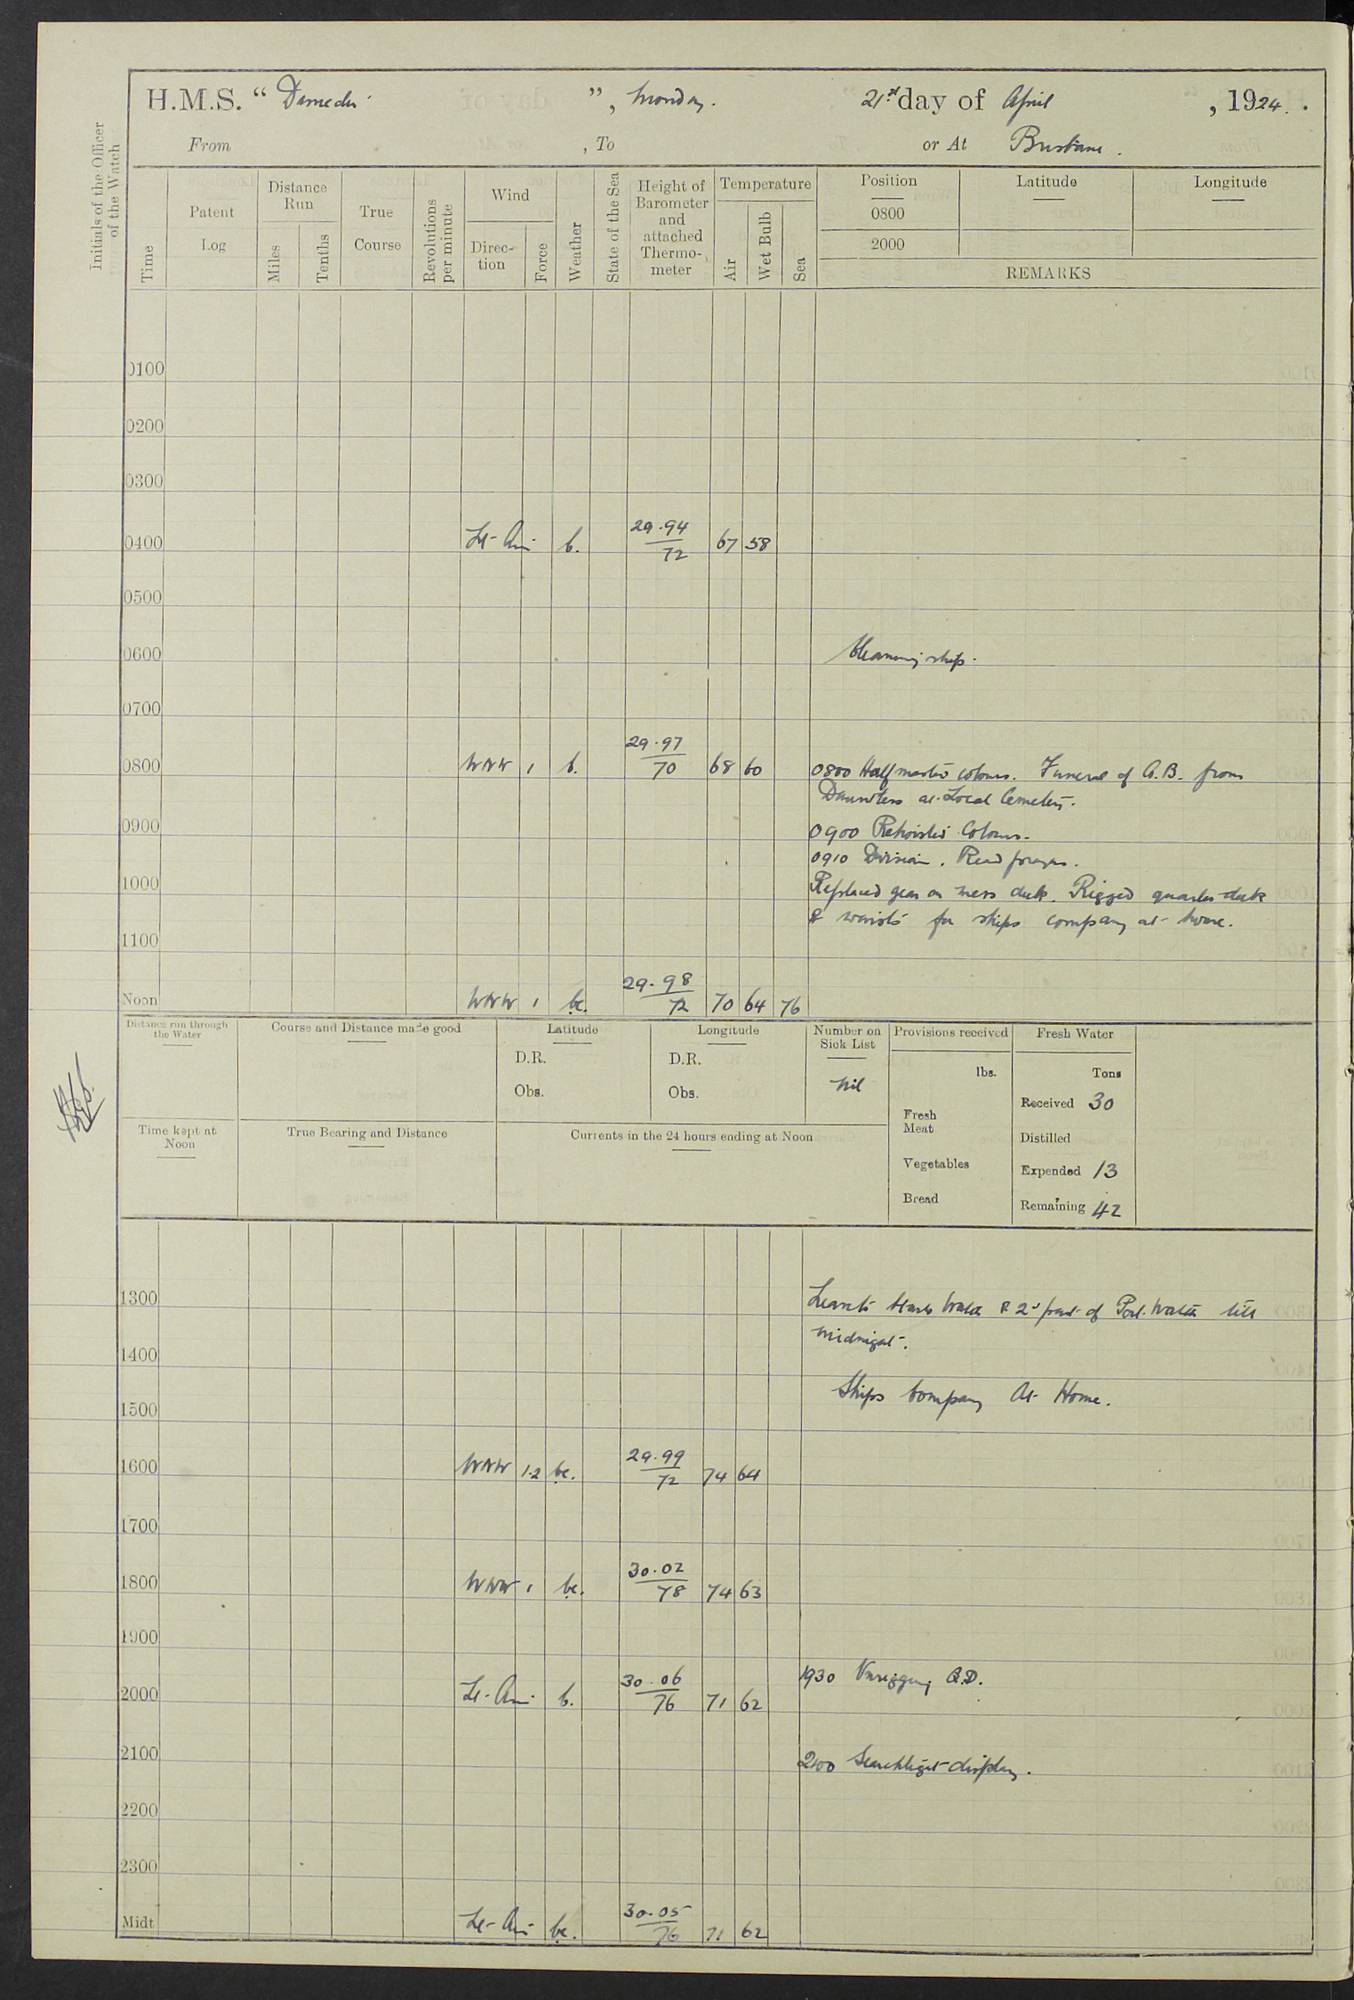 H.M.S. “ Danae ”, Monday. 21st day of April, 1924.
From , To or At Brisbane.
Initials of the Officer of the Watch
Time
Patent Log
Distance Run
Miles
Tenths
True Course
Revolutions per minute
Wind
Direction
Force
Weather
State of the Sea
Height of Barometer and attached Thermometer
Temperature
Air
Wet Bulb
Sea
Position Latitude Longitude
0800
2000
REMARKS
0100
0200
0300
0400 Lt - Air - b. 29.94/72 67 58
0500
0600 Cleaning ship.
0700
0800 WNW 1 b. 29.97/70 68 60 0800 Half masted colours. Funeral of A.B. from
Dauntless at Local Cemetery.
0900 0900 Rehoisted Colours.
0910 Division. Read prayers.
1000 Replaced gear on mess deck. Rigged quarter deck
& waists for ships company at home.
1100
Noon WNW 1 bc. 29.98/72 70 64 76
Distance run through the Water
Course and Distance made good
Latitude
D.R.
Obs.
Longitude
D.R.
Obs.
Number on Sick List
Nil
Provisions received
lbs.
Fresh Meat
Vegetables
Bread
Fresh Water
Tons
Received 30
Distilled
Expended 13
Remaining 42
Time kept at Noon
True Bearing and Distance
Currents in the 24 hours ending at Noon
1300 Leave to Starb Watch & 2d part of Port Watch till
midnight.
1400
Ships Company At Home.
1500
1600 WNW 1.2 bc. 29.99/72 74 64
1700
1800 WNW 1 bc. 30.02/78 74 63
1900
1930 Unrigging Q.D.
2000 Lt - Air - b. 30.06/76 71 62
2100 2100 Searchlight display.
2200
2300
Midt Lt - Air - bc. 30.05/76 71 62